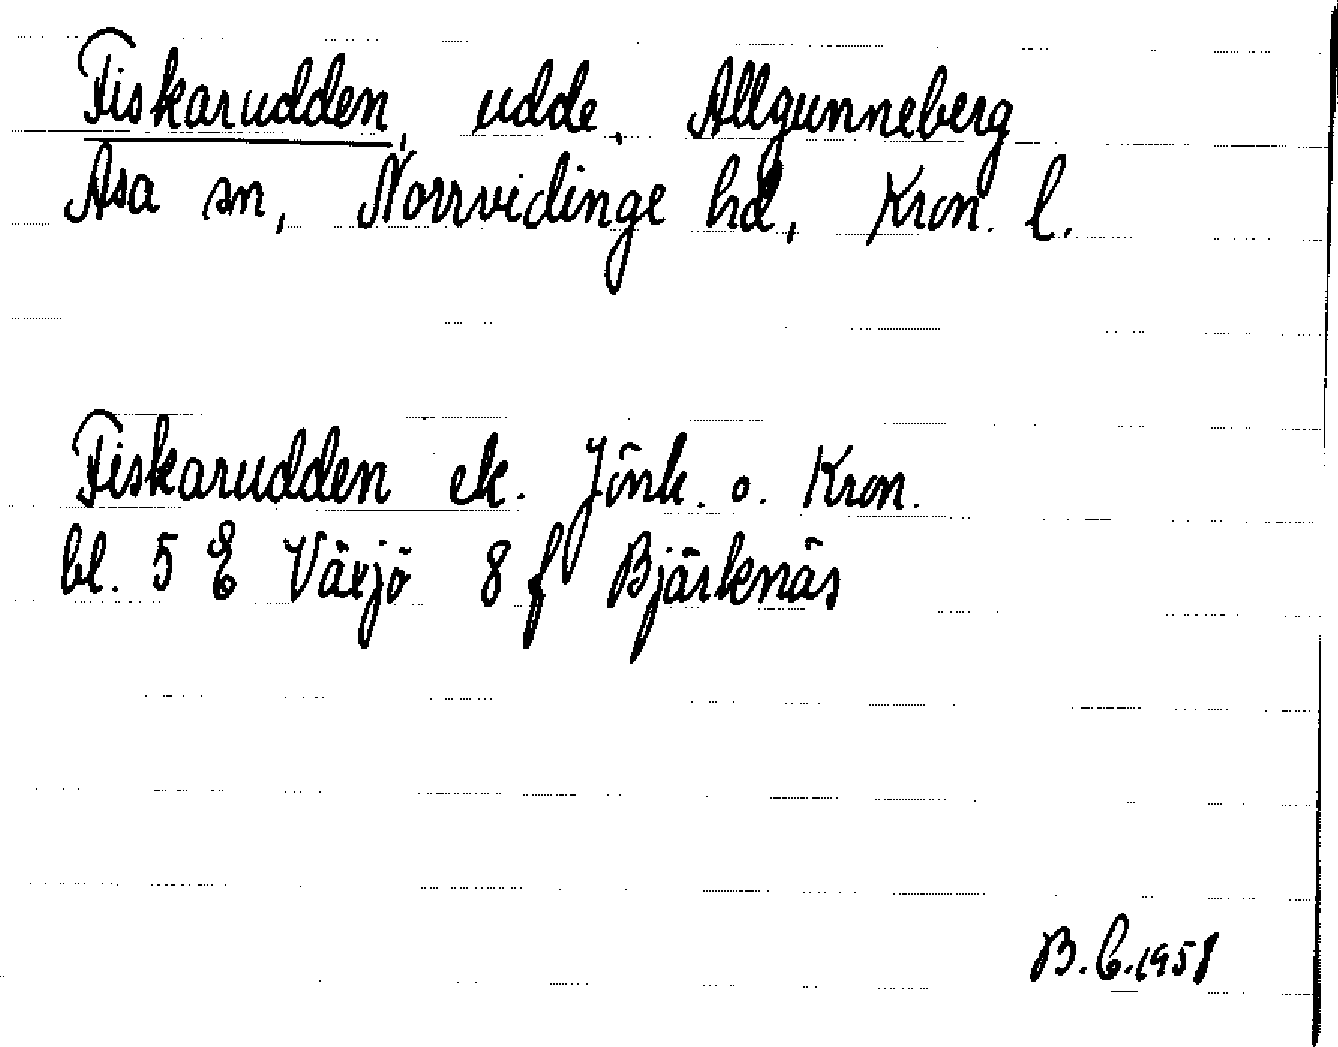 Fiskarudden, udde, Allgunneberg
Asa sn, Norrvidinge hd, Kron. l.
Fiskarudden ek. Jönk. o. Kron.
bl. 5 E Växjö 8 f Bjärkenäs
B. C. 1958